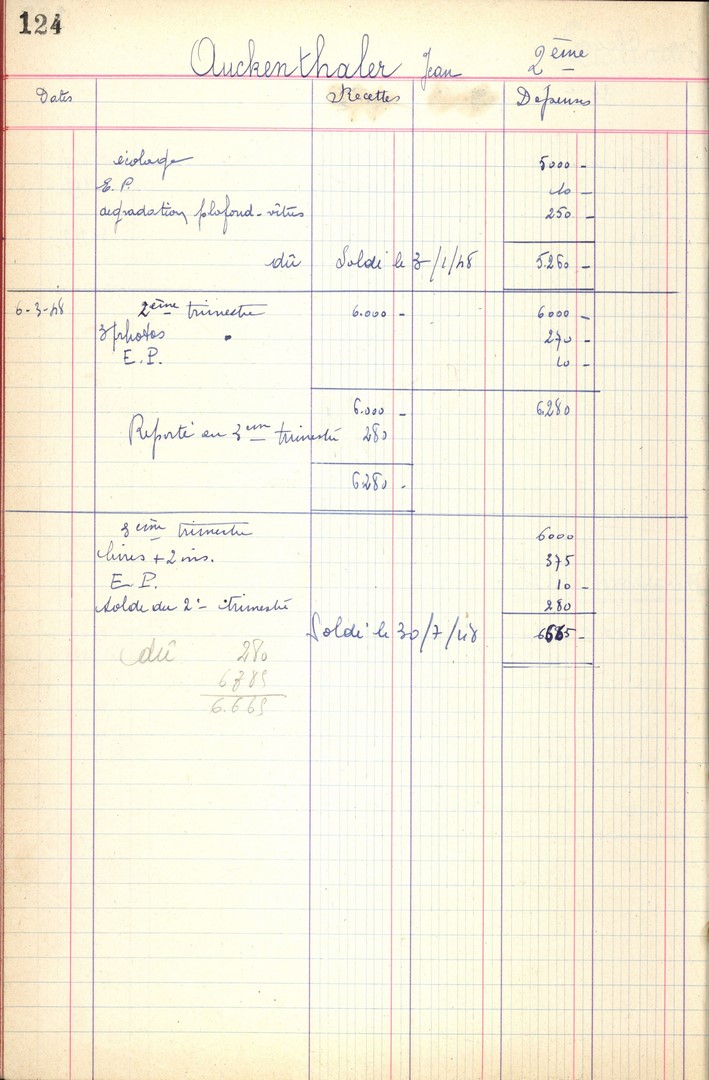 124
Auckenthaler Jean 2ème
Dates Recettes Dépenses
écolage 5000 -
E.P. 10 -
dégradation plafond-vitres 250 -
dû Soldé le 3/1/48 5.260 -
6-3-48 2ème trimestre 6.000 - 6000 -
3 photos 270 -
E.P. 10 -
6.000 - 6.280
Reporté au 3ème trimestre 280
6280 -
3ème trimestre 6000
livres + 2 ins. 375
E.P. 10 -
Solde du 2è trimestre 280
Soldé le 30/7/48 6665 -
dû 280
6385
6.665